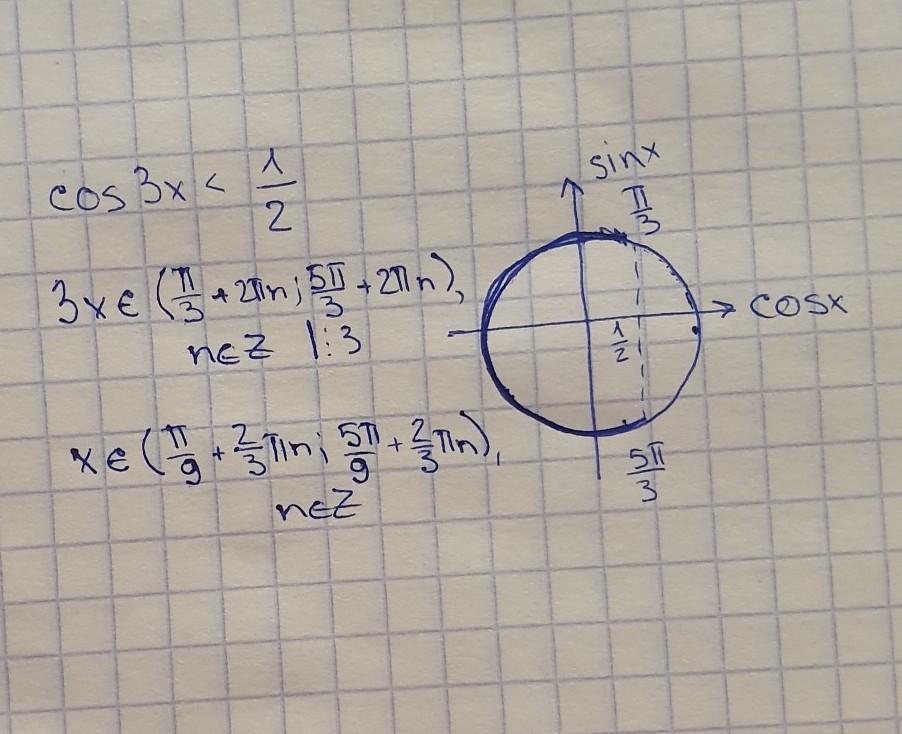 cos3x < 1/2
3x∈(π/3+2πn; 5π/3+2πn),
n∈Z |:3
x∈(π/9+2/3πn; 5π/9+2/3πn),
n∈Z
sinx
π/3
cosx
1/2
5π/3